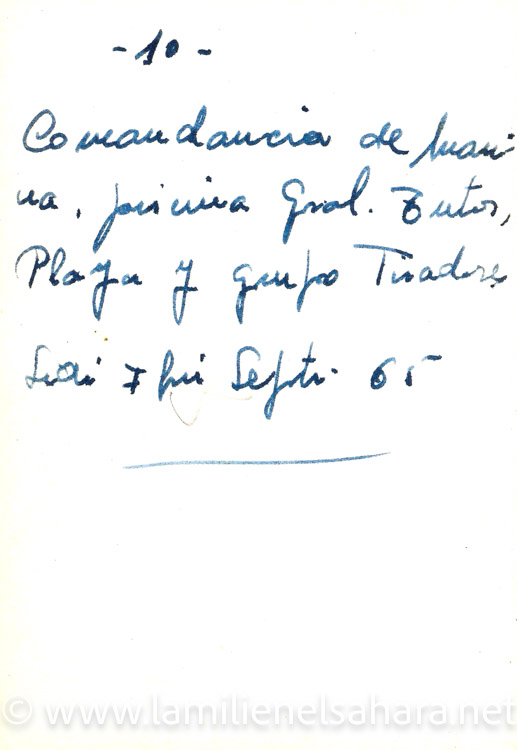 - 10 -
Comandancia de Mari-
na, piscina Gral. Tutor,
Playa y grupo Tiradores
Sidi Ifni Septi. 65
© www.lamilienelsahara.net